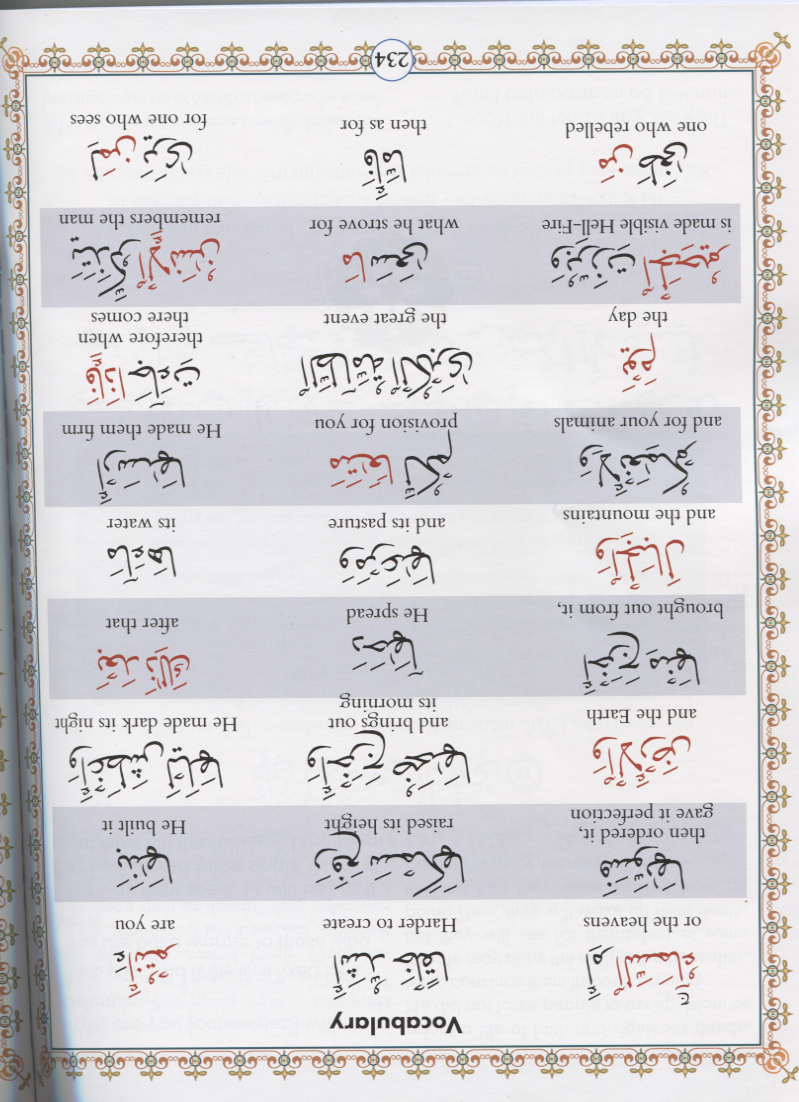 Vocabulary
ءَأَنتُمْ
are you
أَشَدُّ خَلْقًا
Harder to create
أَمِ ٱلسَّمَآءُ ۚ
or the heavens
بَنَىٰهَا
He built it
رَفَعَ سَمْكَهَا
raised its height
فَسَوَّىٰهَا
then ordered it,
gave it perfection
وَأَغْطَشَ لَيْلَهَا
He made dark its night
وَأَخْرَجَ ضُحَىٰهَا
and brings out
its morning
وَٱلْأَرْضَ
and the Earth
بَعْدَ ذَٰلِكَ
after that
دَحَىٰهَآ
He spread
أَخْرَجَ مِنْهَا
brought out from it,
مَآءَهَا
its water
وَمَرْعَىٰهَا
and its pasture
وَٱلْجِبَالَ
and the mountains
أَرْسَىٰهَا
He made them firm
مَتَٰعًا لَّكُمْ
provision for you
وَلِأَنْعَٰمِكُمْ
and for your animals
فَإِذَا جَآءَتِ
therefore when
there comes
ٱلطَّآمَّةُ ٱلْكُبْرَىٰ
the great event
يَوْمَ
the day
يَتَذَكَّرُ ٱلْإِنسَٰنُ
remembers the man
مَا سَعَىٰ
what he strove for
وَبُرِّزَتِ ٱلْجَحِيمُ
is made visible Hell-Fire
لِمَن يَرَىٰ
for one who sees
فَأَمَّا
then as for
مَن طَغَىٰ
one who rebelled
234